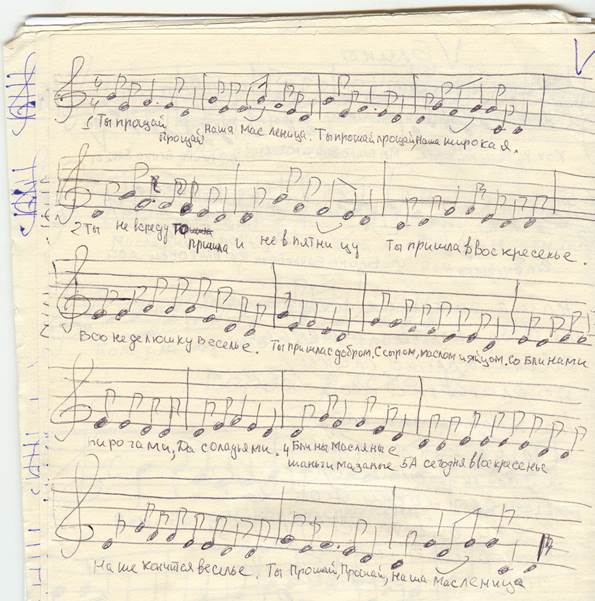 1 Ты прощай прощай, наша масленица. Ты прощай прощай, наша широкая.
2 Ты не в среду пришла и не в пятницу Ты пришла в воскресенье.
Всю неделюшку веселье. Ты пришла с добром, с сыром, маслом и яйцом, Со блинами
пирогами, Да с оладьями. 4 Блины масляные
шаньги мазаные 5 А сегодня в воскресенье
Наше кончится веселье. Ты прощай, прощай, наша масленица